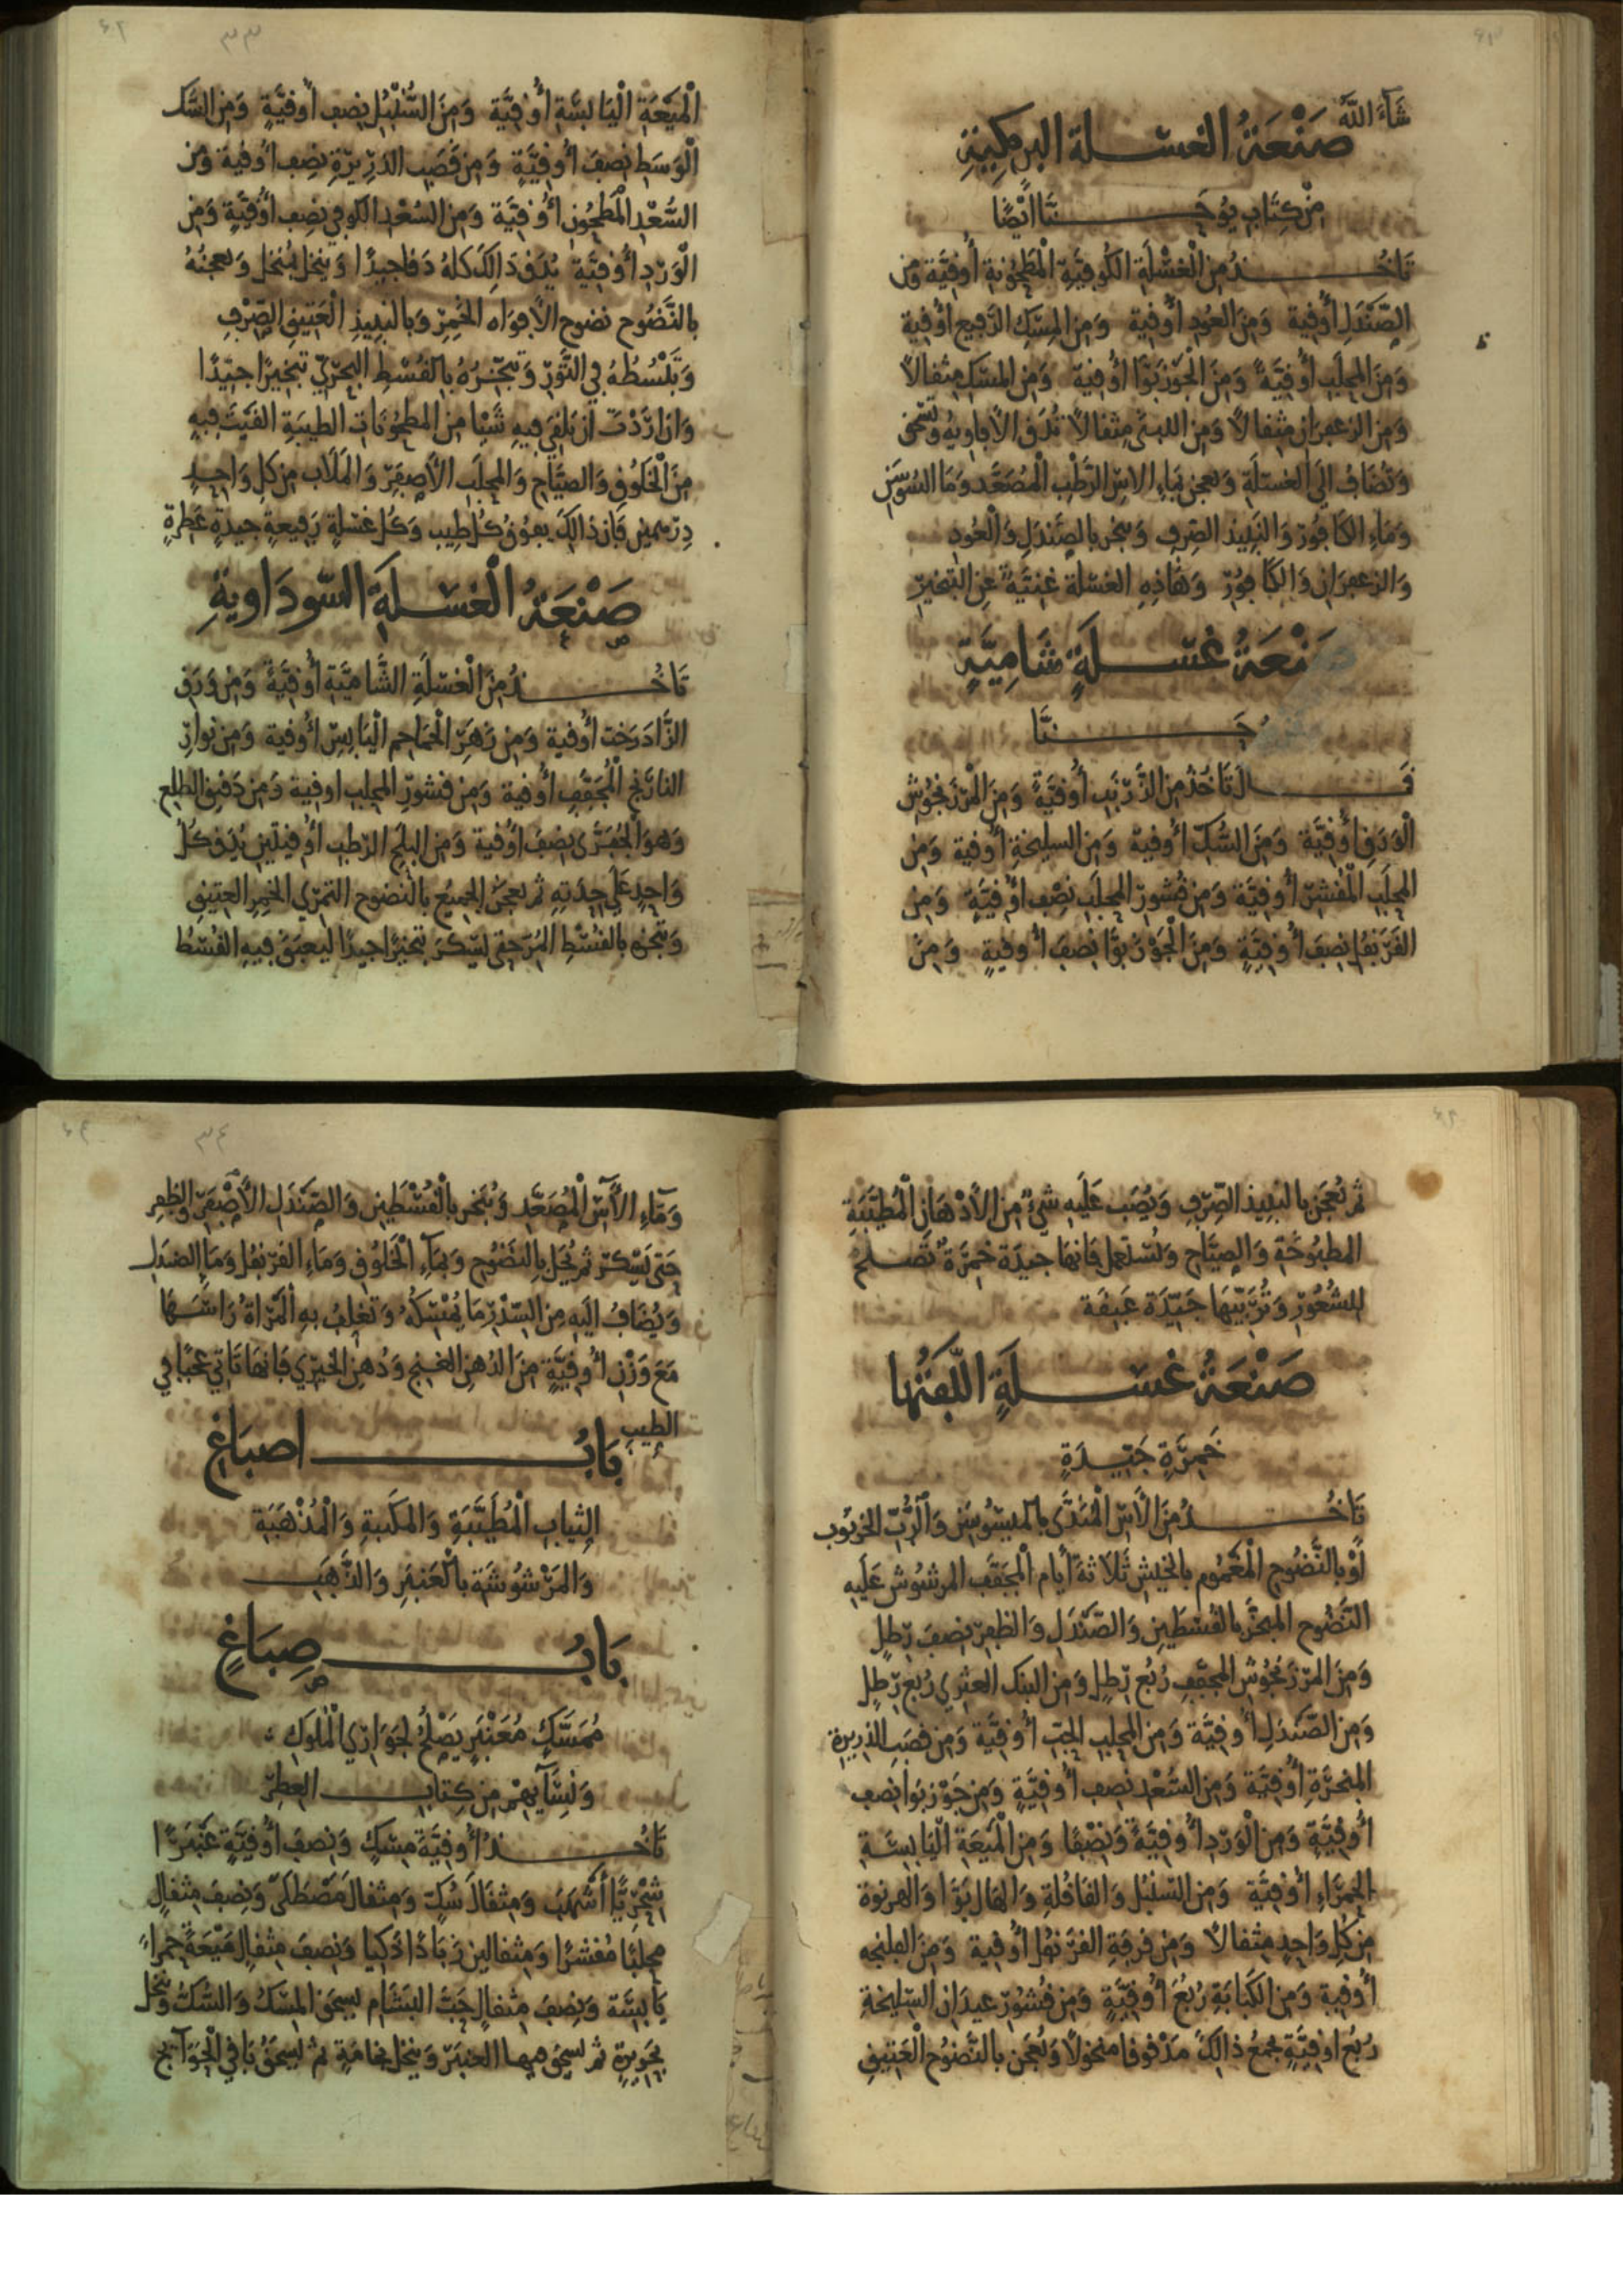 شَآءَ اللَّهُ
صَنْعَةُ الغسلة البرمكية
مِنْ كِتَابِ يُوحَنَّا أَيْضًا
تَأْخُذُ مِنَ الْغَسْلَةِ الكُوفِيَّةِ الْمَطْحُونَةِ أُوقِيَّة وَمِن
الصَّنْدَلِ أُوقية وَمِنَ العُودِ أُوقية وَمِنَ المسك الرفيع أُوقية
وَمِنَ المحلب أُوقيَّةً وَمِنَ الْجَوْزبَوَّا أُوقية وَمِنَ المسك مثقالاً
وَمِنَ الزعفران مثقالاً وَمِنَ اللبنى مثقالاً تُدَق الأفاويه وتسحق
وَتُضَافُ إلَى الغسلة وَتعجن بماء الاس الرَّطْب الْمُصَعَّد وَمَا السوسن
وَمَاءِ الكافور وَالنبيذ الصرف وتبخر بالصندل وَالْعُودِ
وَالزعفران وَالكافور وَهَاذِهِ الغسلة غنيَّةً عن التبخير
صَنْعَةُ غسلَةٍ شَامِيَّةٍ
حَنَّا
قَالَ تَأخُذُ مِنَ الزَّرْنَبِ أُوقِيَّةً وَمِنَ الْمَرْزَنجُوش
الْوَرَقِ أُوقِيَّة وَمِنَ السُّكِّ أُوقية وَمِنَ السليخةِ أُوقية وَمِن
المحلب الْمُقشر أُوقيَّة وَمِن قُشُور المحلَب نِصْف أُوقِيَّةٍ وَمِن
القَرَنفل نِصفَ أُوقِيَّةٍ وَمِنَ الْجَوْزبَوَّا نصفَ أُوقيةٍ وَمِنَ
الْمَيْعَةِ الْيَابسَةِ أُوقِيَّة وَمِنَ السُّنْبُلِ نصف أُوقيَّةٍ وَمِنَ السُّك
الْوَسَطِ نصفَ أُوقِيَّةٍ وَمِن قَصَبِ الذرِيرَةِ نِصف أُوقية وَمن
السُّعْدِ المَطحُونِ أُوقيَّة وَمِنَ السُّعْدِ الكوفي نصف أُوقِيَّةٍ وَمِن
الْوَرْدِ أُوقيَّة يُدَق ذَالِكَ كله دَقا جيدًا وَينخل بمُنخل وَتعجنُهُ
بالنَّضُوح نضوح الأفوَاه الخمِر وَبالنبيذِ الْعَتِيقِ الصِّرْفِ
وَتَبْسُطُهُ في التَّوْرِ وَتبخرُهُ بالقُسْطِ البحْرِيّ تبخيرًا جيّدًا
وَان ارَدْتَ ان تلقي فيه شَيْا من المطحُونات الطيبة القَيْتَ فيه
مِنَ الْخَلُوقِ وَالصيَّاحِ وَالمحلَب الأصفَر وَالمَلاب من كل وَاحد
دِرْهمين فَإن ذالِكَ يفوق كُلَّ طِيب وَكُل غسلةٍ رَفيعةٍ جيدةٍ عَطرةٍ
صَنْعَةُ الْغسلَةِ السّودَاويةِ
تَاخُذُ مِنَ الْغسْلَةِ الشَّاميَّةِ أُوقِيَّةً وَمِنْ وَرَق
الزَّادَرَخت أُوقية وَمِن زَهَرِ الْحَمَاحِم الْيَابِسِ أُوقية وَمِن نوار
النارَنج الْمُجَفَّفِ أُوقية وَمِن قشورِ المحلب اوقية وَمِن دَقيق الطلع
وَهوَ الْجُفَرَّى نصفَ اوقية وَمِنَ البلَحِ الرّطب أُوقيتين يُدق كُلُّ
وَاحِدٍ عَلَى حِدَتِهِ ثم تعجن الجميع بالنضوح التمْري الخمِر العتيق
وَتبخره بالقُسْطِ المُرّ حتى يسْكَرَ تبخيرًا جيدًا ليعبَقَ فيهِ القسْطُ
ثم تُعجَن بالنبيذ الصِّرفِ وَيُصَب عَلَيه شيْءٌ مِنَ الأَدْهَانِ الْمُطيَّبَةِ
المطبُوخَةِ وَالصيَّاحِ وَتُسْتعمل فَانها جيدة خمرَة تَصلح
للشُّعُورِ وَتُرَبِّيهَا جَيّدَة عَبِقَة
صَنْعَةُ غسلَةٍ اللّفتُها
خَمِرَةٍ جَيّدَةٍ
تَاخُذُ مِنَ الآس الْمُنَدَّى بالميسُوسَن وَالرُّبِّ الخرنوب
أَوْ بالنَّضُوحِ الْمَغْمُوم بالخيش ثَلَاثَةَ أيام الْمجَفَّف المرشوش عَلَيه
النَّضُوح المبخَّر بالقسْطَينِ وَالصَّنْدَلِ وَالظفر نصفَ رطل
وَمِنَ المَرْزَنْجُوش المجَفف رُبُع رطلٍ وَمِن البنك العثري رُبع رطلٍ
وَمِن الصَّندَلِ أُوقيَّة وَمِن المحلب الحَبِّ أُوقِيَّة وَمِن قصَب الذريرة
المبخرة أُوقيّة وَمِن السُّعْد نصف أُوقيَّةٍ وَمِن جَوْزبَوا نصف
أُوقيَّةٍ وَمِن الْوَرْدِ أُوقيةً وَنِصْفًا وَمِنَ الْمَيعَةِ الْيَابِسَة
الحمرَاءِ أُوقيَّة وَمِنَ السّنبُل وَالقَاقُلةِ وَالهَال بَوّا وَالهرنوة
من كُل وَاحدٍ مِثقالاً وَمِن قرفةِ القرَنفُل أُوقية وَمِنَ الفلنجه
أُوقيةٍ وَمِنَ الكَبَابَةِ رُبُعَ أُوقِيَّةٍ وَمِن قُشُور عيدَان السّليخةِ
رُبُعَ أُوقِيَّةٍ تجمعُ ذالِكَ مَدْقوقا منخولاً وَتُعجَن بالنَّضُوح الْعَتِيقِ
وَمَآءِ الآسِ الْمُصَعَّدِ وَيُبَخر بالْقُسْطَينِ وَالصَّندَلِ الأَصْفَرِ وَالظفر
حَتى يَسْكرَ ثم يُحَل بالنَضُوحِ وَبمَآءِ الْخَلُوقِ وَمَاءِ القَرنفُل وَمَا الصندَل
وَيُضَافُ اليه من السّدْرِ مَا يُمْسكُهُ وَتُغلِفُ به الْمَرْاةُ رَاسَهَا
مَعَ وَزْنِ أُوقيَّةٍ مِنَ الدُهنِ الغَنج وَدُهنِ الخيري فَانهَا تَاتي عَجَبًا في
الطِيبِ
بَابُ اصبَاغِ
الثيابِ الْمُطَيَّبَةِ وَالمكَّبةِ وَالْمُذْهَبَة
وَالمَرْشُوشَةِ بالْعَنبَرِ وَالذَّهَب
بَابُ صِبَاغٍ
مُمَسَّكٍ مُعَنْبَرٍ يَصْلُحُ لجوَارِي الْمُلوكِ
وَنِسَآيهِمْ مِن كِتَاب العِطرِ
تَاخُذُ أُوقِيَّةَ مِسْكٍ وَنِصفَ أُوقِيَّةٍ عَنْبَرًا
شِحْرِيًّا أَشْهَبَ وَمِثقَالَ سُكٍّ وَمِثقالَ مَصْطَكَى وَنِصفَ مِثقالٍ
محلبًا مُقشرًا وَمِثقالين زَبَادًا ذكيا وَنصفَ مِثقالٍ مَيْعَةً حمراءً
يَابسَة وَنِصفَ مِثقالٍ حَبَّ البَشَام يسحَق المِسْكُ وَالسُّكُّ وَينخل
بحَرِيرَةٍ ثم يسحق العنبَرُ وَينخل بخامَةٍ ثم يُسحَقُ بَاقي الْحَوَآئج